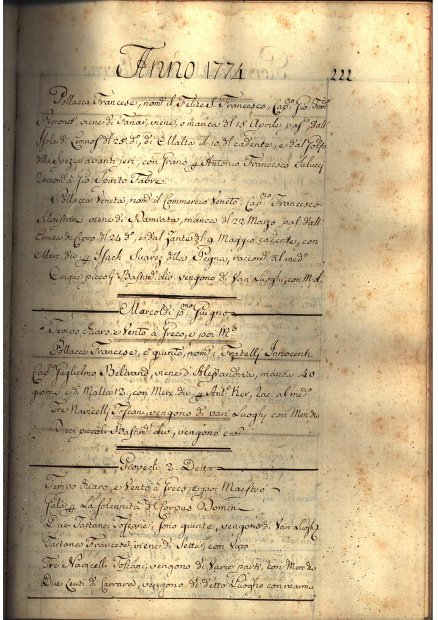 Anno 1774
222
Pollacca Francese, nom.ta il Felice S. Francesco, Cap.
viene di manca dl 15 Aprile, dall'
Isola di dl 25 d.º, di Malta il 10 dl cadente, e dal Golfo
dlla Spezia avanti jeri, con Grano p Antonio Francesco Salucci
raccom.d à Gio: Spirito Fabre.
Pollacca Veneta, nom.ta il Commercio Veneto, Cap.no Francesco
viene di Damiata, manca dl 22 Marzo, dall'
di Cipro dl 24 d.º, e dal Zante dl 9 Maggio cadente, con
Merc. div. p Isach Suares dlla Pegna, raccod. al med.º
Cinque piccoli Bastim.ti div. vengono di Varj Luoghi, con M. d.
Mercoldì p.mo Giugno
Tempo chiaro, e Vento à Greco, e poi M.º
Pollacca Francese, è giunto, nom.ta i Fratelli Innocenti
Cap.º Guglielmo viene d'Alessandria, manca 40
giorni, e di Malta 12, con Merc. div. p Ant.º al med.º
Tre Navicelli Toscani, vengono di varj Luoghi con Mer. div.
Dieci piccoli Bastim.ti div. vengono
Giovedì 2 Detto
Tempo chiaro, e Vento à Greco, e poi Maestro
p La Solennità dl Corpus Domini
Due Tartane Toscane, sono giunte, vengono di Varj Luoghi
Tartana Francese, viene di con
Tre Navicelli Toscani, vengono di Varie parti, con Mer. d.
Due Leuti di Carrara, vengono di detto Luogho con marmi